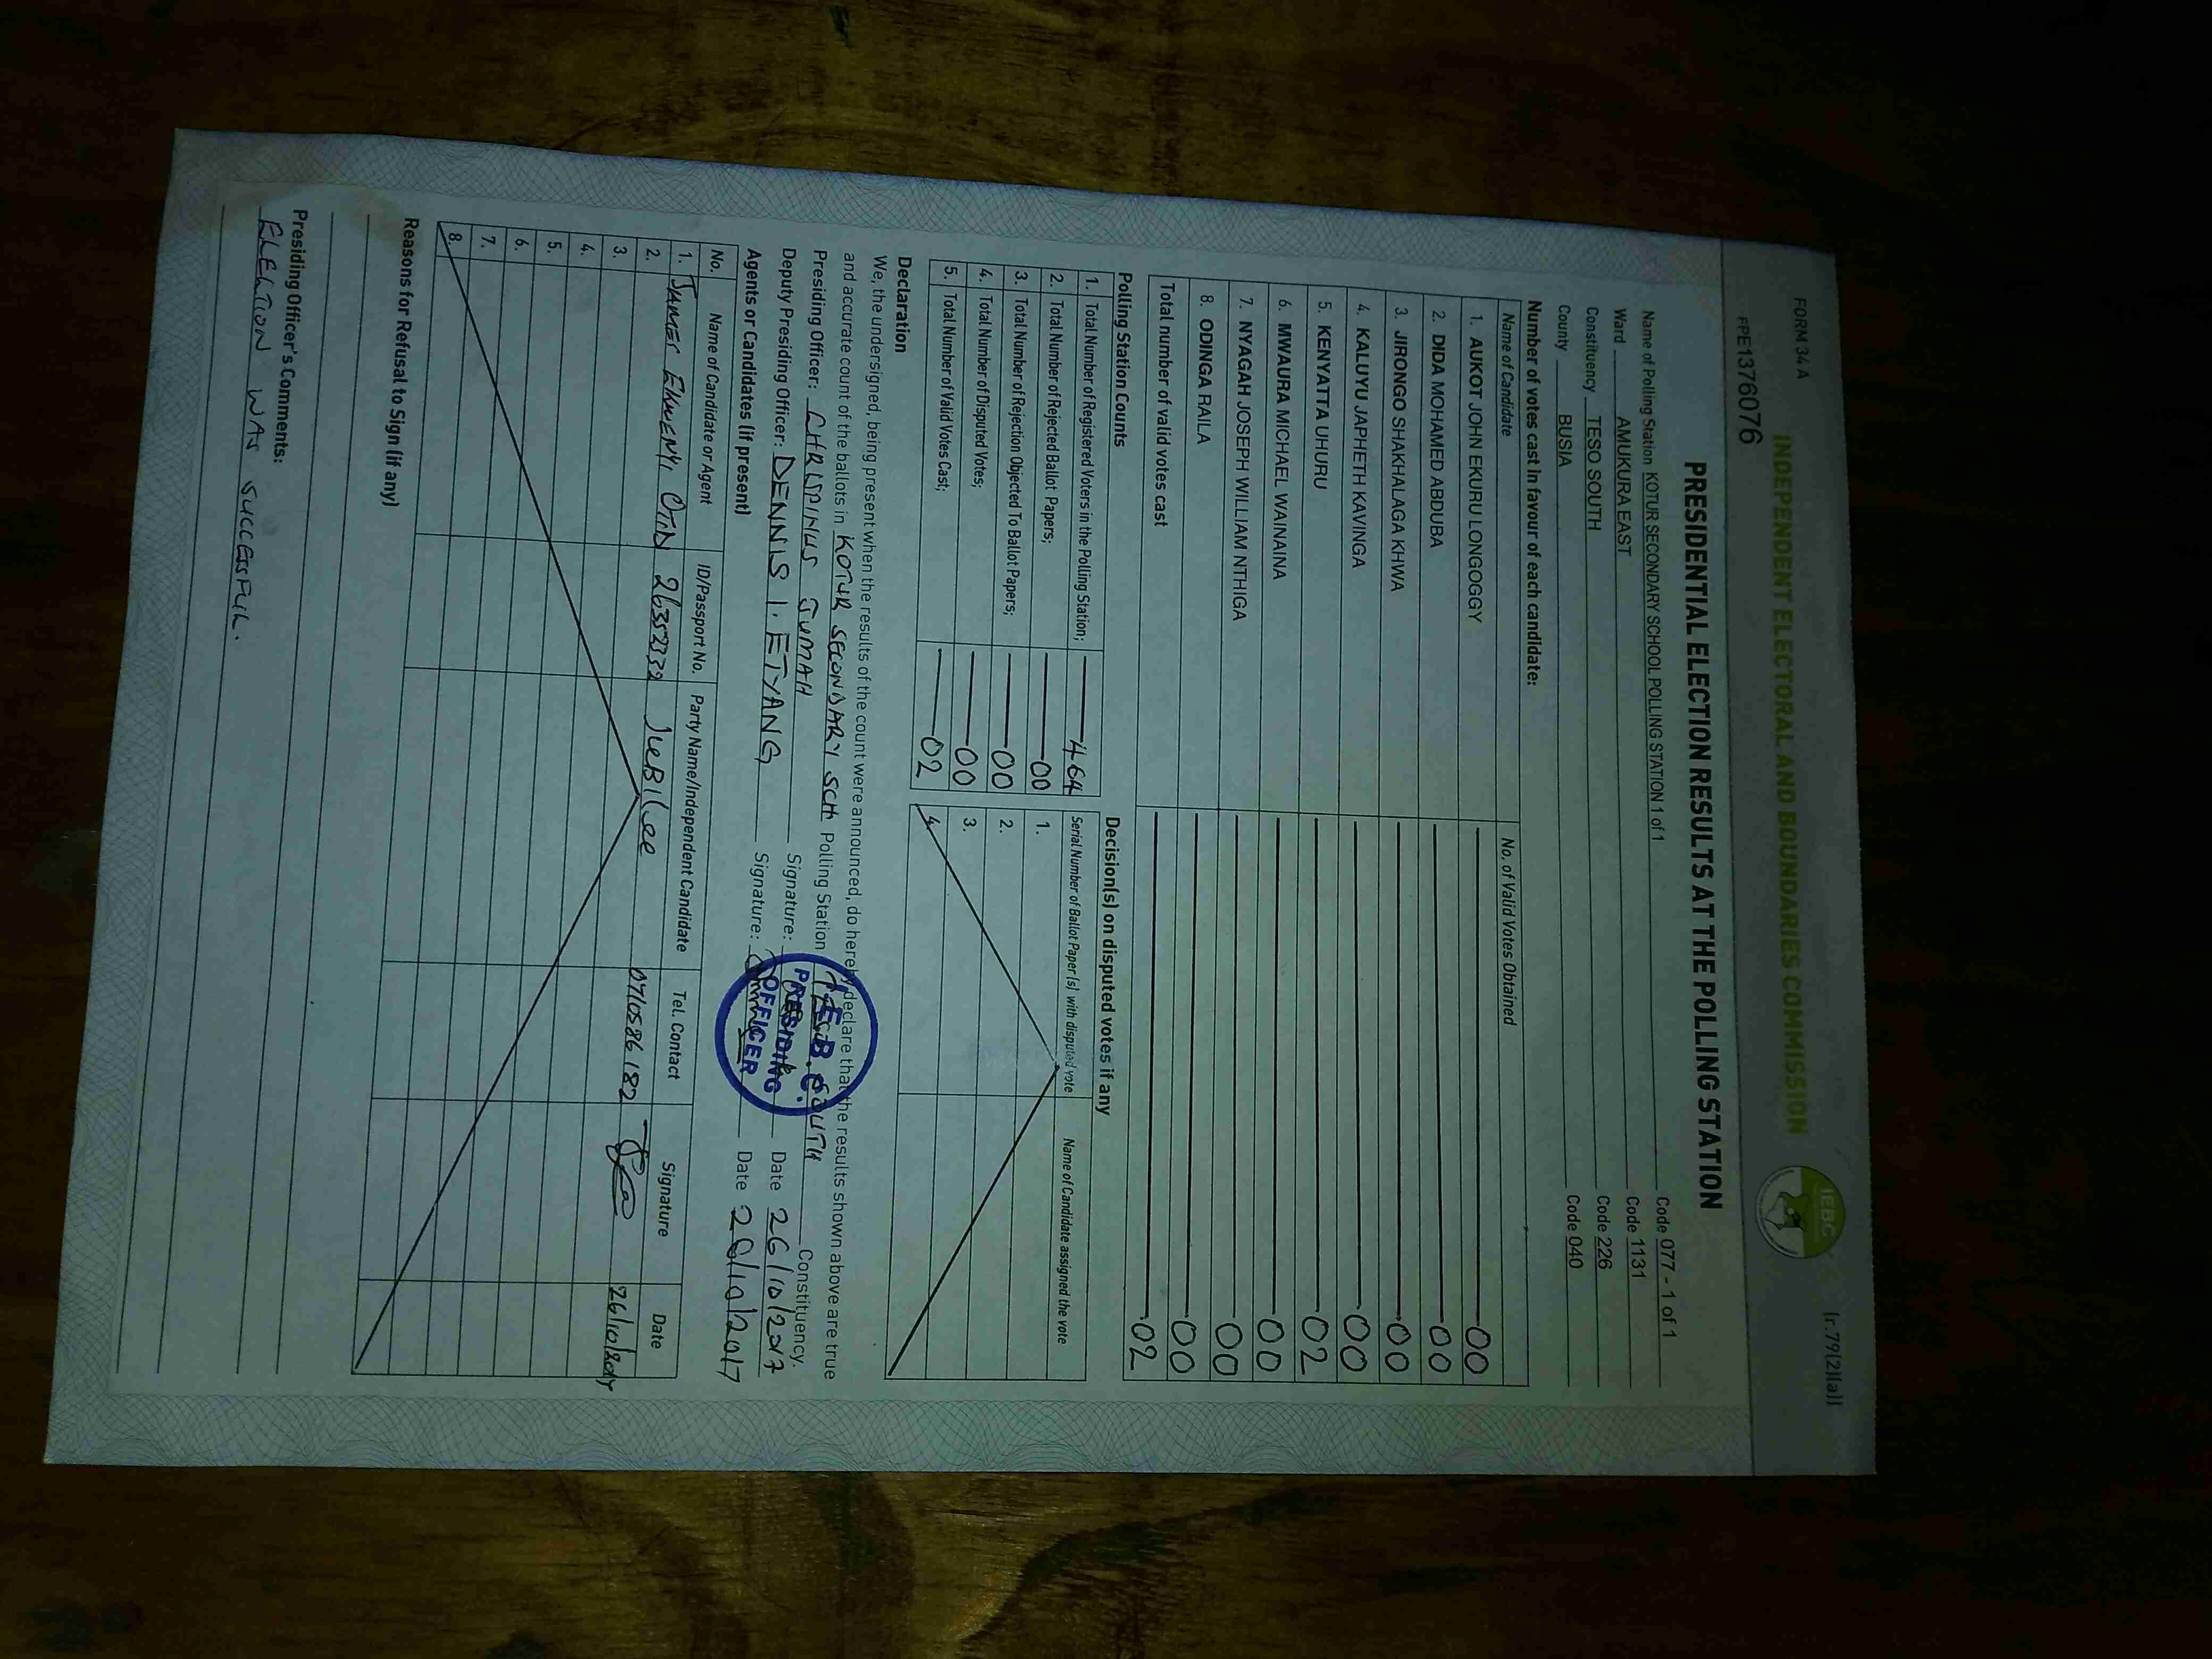 FORM 34 A
[r.79(2)(a)]
INDEPENDENT ELECTORAL AND BOUNDARIES COMMISSION
IEBC
FPE1376076
PRESIDENTIAL ELECTION RESULTS AT THE POLLING STATION
Name of Polling Station KOTUR SECONDARY SCHOOL POLLING STATION 1 of 1 Code 077 - 1 of 1
Ward AMUKURA EAST Code 1131
Constituency TESO SOUTH Code 226
County BUSIA Code 040
Number of votes cast in favour of each candidate:
Name of Candidate No. of Valid Votes Obtained
1. AUKOT JOHN EKURU LONGOGGY 00
2. DIDA MOHAMED ABDUBA 00
3. JIRONGO SHAKHALAGA KHWA 00
4. KALUYU JAPHETH KAVINGA 00
5. KENYATTA UHURU 02
6. MWAURA MICHAEL WAINAINA 00
7. NYAGAH JOSEPH WILLIAM NTHIGA 00
8. ODINGA RAILA 00
Total number of valid votes cast 02
Polling Station Counts
1. Total Number of Registered Voters in the Polling Station; 464
2. Total Number of Rejected Ballot Papers; 00
3. Total Number of Rejection Objected To Ballot Papers; 00
4. Total Number of Disputed Votes; 00
5. Total Number of Valid Votes Cast; 02
Decision(s) on disputed votes if any
Serial Number of Ballot Paper (s) with disputed vote Name of Candidate assigned the vote
1.
2.
3.
4.
Declaration
We, the undersigned, being present when the results of the count were announced, do hereby declare that the results shown above are true
and accurate count of the ballots in KOTUR SECONDARY SCH Polling Station TESO SOUTH Constituency.
Presiding Officer: CHRISPINUS JUMAH Signature: Date 26/10/2017
Deputy Presiding Officer: DENNIS I. ETYANG Signature: Date 26/10/2017
I.E.B.C.
PRESIDING
OFFICER
Agents or Candidates (if present)
No. Name of Candidate or Agent ID/Passport No. Party Name/Independent Candidate Tel. Contact Signature Date
1. JAMES 26352332 JUBILEE 0710586182 26/10/2017
2.
3.
4.
5.
6.
7.
8.
Reasons for Refusal to Sign (if any)
Presiding Officer's Comments:
ELECTION WAS SUCCESSFUL.